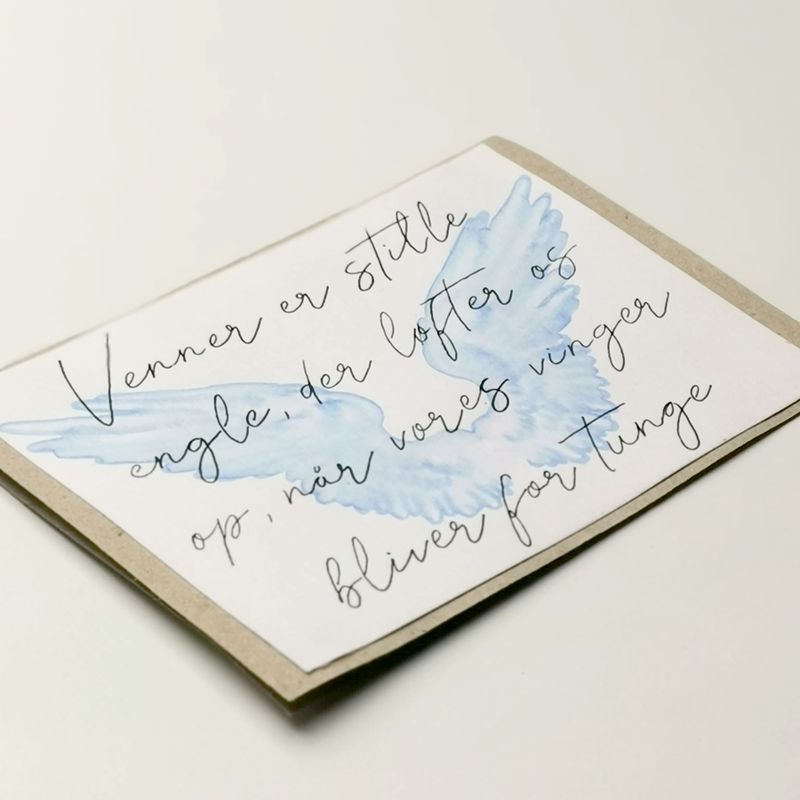 Venner er stille
engle, der løfter os
op, når vores vinger
bliver for tunge